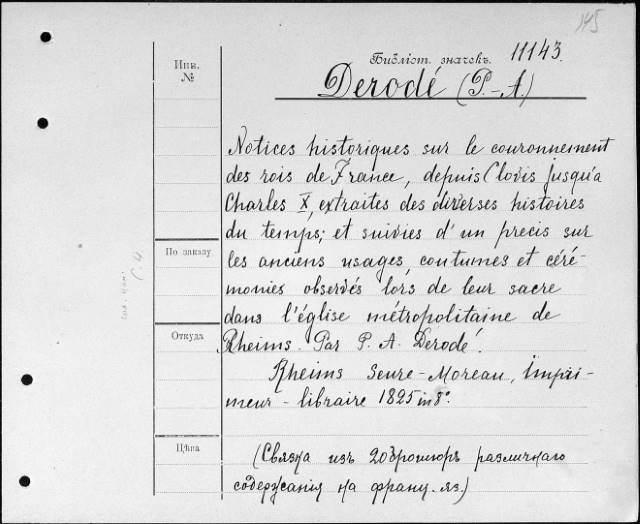 145
Инв.
№
Библіот. значекъ. 11143.
Derodé (P.-A.)
Notices historiques sur le couronnement
des rois de France, depuis Clovis jusqu'a
Charles X, extraites des diverses histoires
du temps; et suivies d'un precis sur
По заказу
les anciens usages, coutumes et céré-
monies observés lors de leur sacre
dans l'église métropolitaine de
Откуда
Rheims. Par P. A. Derodé.
Rheims Seure-Moreau, Impri-
meur-libraire 1825 in 8°.
Цѣна
(Связка изъ 20 брошюръ различнаго
содержанія на франц. яз.)